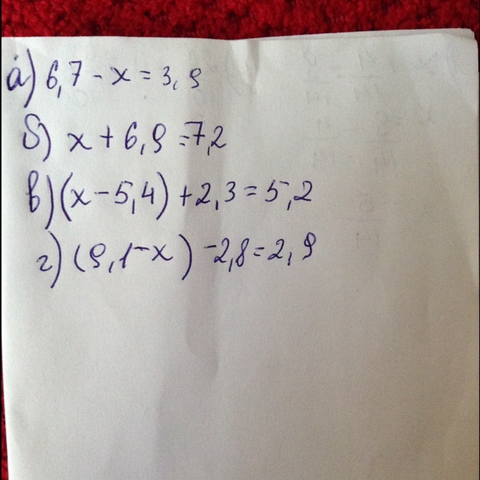 а) 6,7 - x = 3,9
б) x + 6,9 = 7,2
в) (x - 5,4) + 2,3 = 5,2
г) (9,1 - x) - 2,8 = 2,9